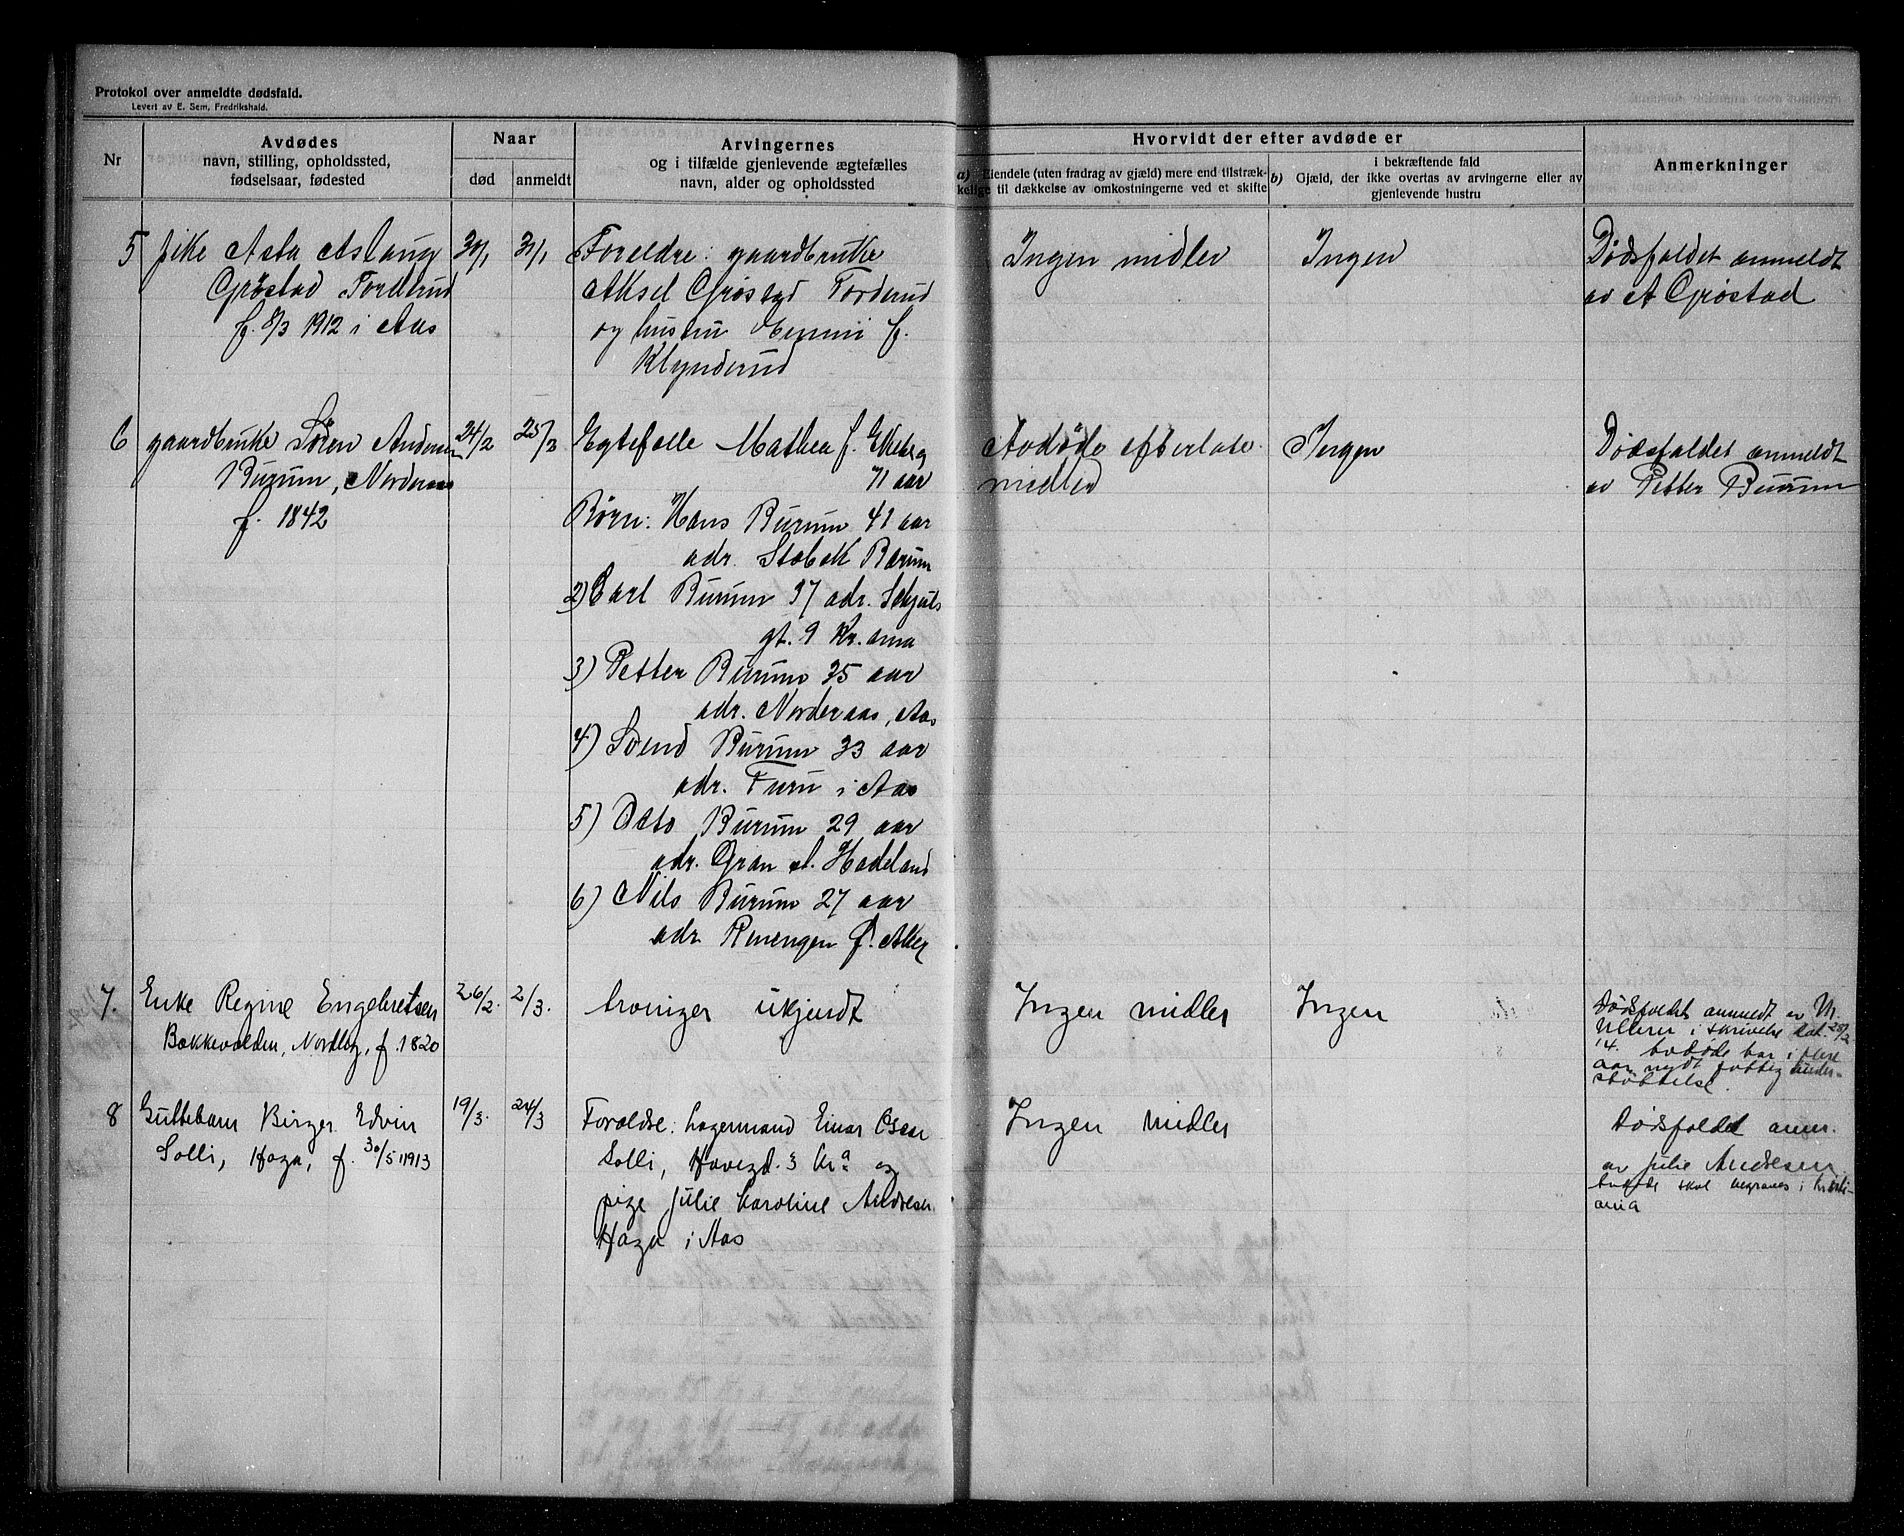 Protokol over anmeldte dødsfald.
Levert av E. Sem, Fredrikshald.
Nr
Avdødes
navn, stilling, opholdssted,
fødselsaar, fødested
Naar
død
anmeldt
Arvingernes
og i tilfælde gjenlevende ægtefælles
navn, alder og opholdssted
Hvorvidt der efter avdøde er
a) Eiendele (uten fradrag av gjæld) mere end tilstræk-
kelige til dækkelse av omkostningerne ved et skifte
b)
i bekræftende fald
Gjæld, der ikke overtas av arvingerne eller av
gjenlevende hustru
Anmerkninger
5 pike Asta Aslaug
Grøstad Forderud
f. 8/3 1912 i Aas
30/1
31/1
Foreldre: gaardbruke
Aksel Grøstad Forderud
og hustru f.
Klynderud
Ingen midler
Ingen
Dødsfaldet anmeldt
av A Grøstad
6 gaardbruke Søren Andersen
Burum, Norderaas
f. 1842
24/2
25/2
Egtefelle Mathea f. Ekeberg
71 aar
Børn: Hans Burum 41 aar
adr. Stabek Bærum
2) Carl Burum 37 adr. Schjuls
gt. 9 Kr.ania
3) Petter Burum 35 aar
adr. Norderaas, Aas
4) Svend Burum 33 aar
adr. Furu i Aas
5) Otto Burum 29 aar
adr. Gran st. Hadeland
6) Nils Burum 27 aar
adr. Ø. Aker
Avdøde efterlate
midler
Ingen
Dødsfaldet anmeldt
av Petter Burum
7. Enke Regine Engebretsen
Bakkevolden, Nordby, f. 1820
26/2.
2/3.
Arvinger ukjendt
Ingen midler
Ingen
Dødsfaldet anmeldt av M.
Ullerud i skrivelse dat. 28/2
14. Avdøde har i flere
aar nydt fattigunder-
støttelse.
8 Guttebarn Birger Edvin
Solli, Haga, f. 30/5 1913
19/3.
24/3
Foreldre: lagermand Einar Oscar
Solli, Havegd. 3 Kr.a og
pige Julie Caroline Andresen
Haga i Aas
Ingen midler
Dødsfaldet anm.
av Julie Andresen
Avdøde skal begraves i Kristi-
ania